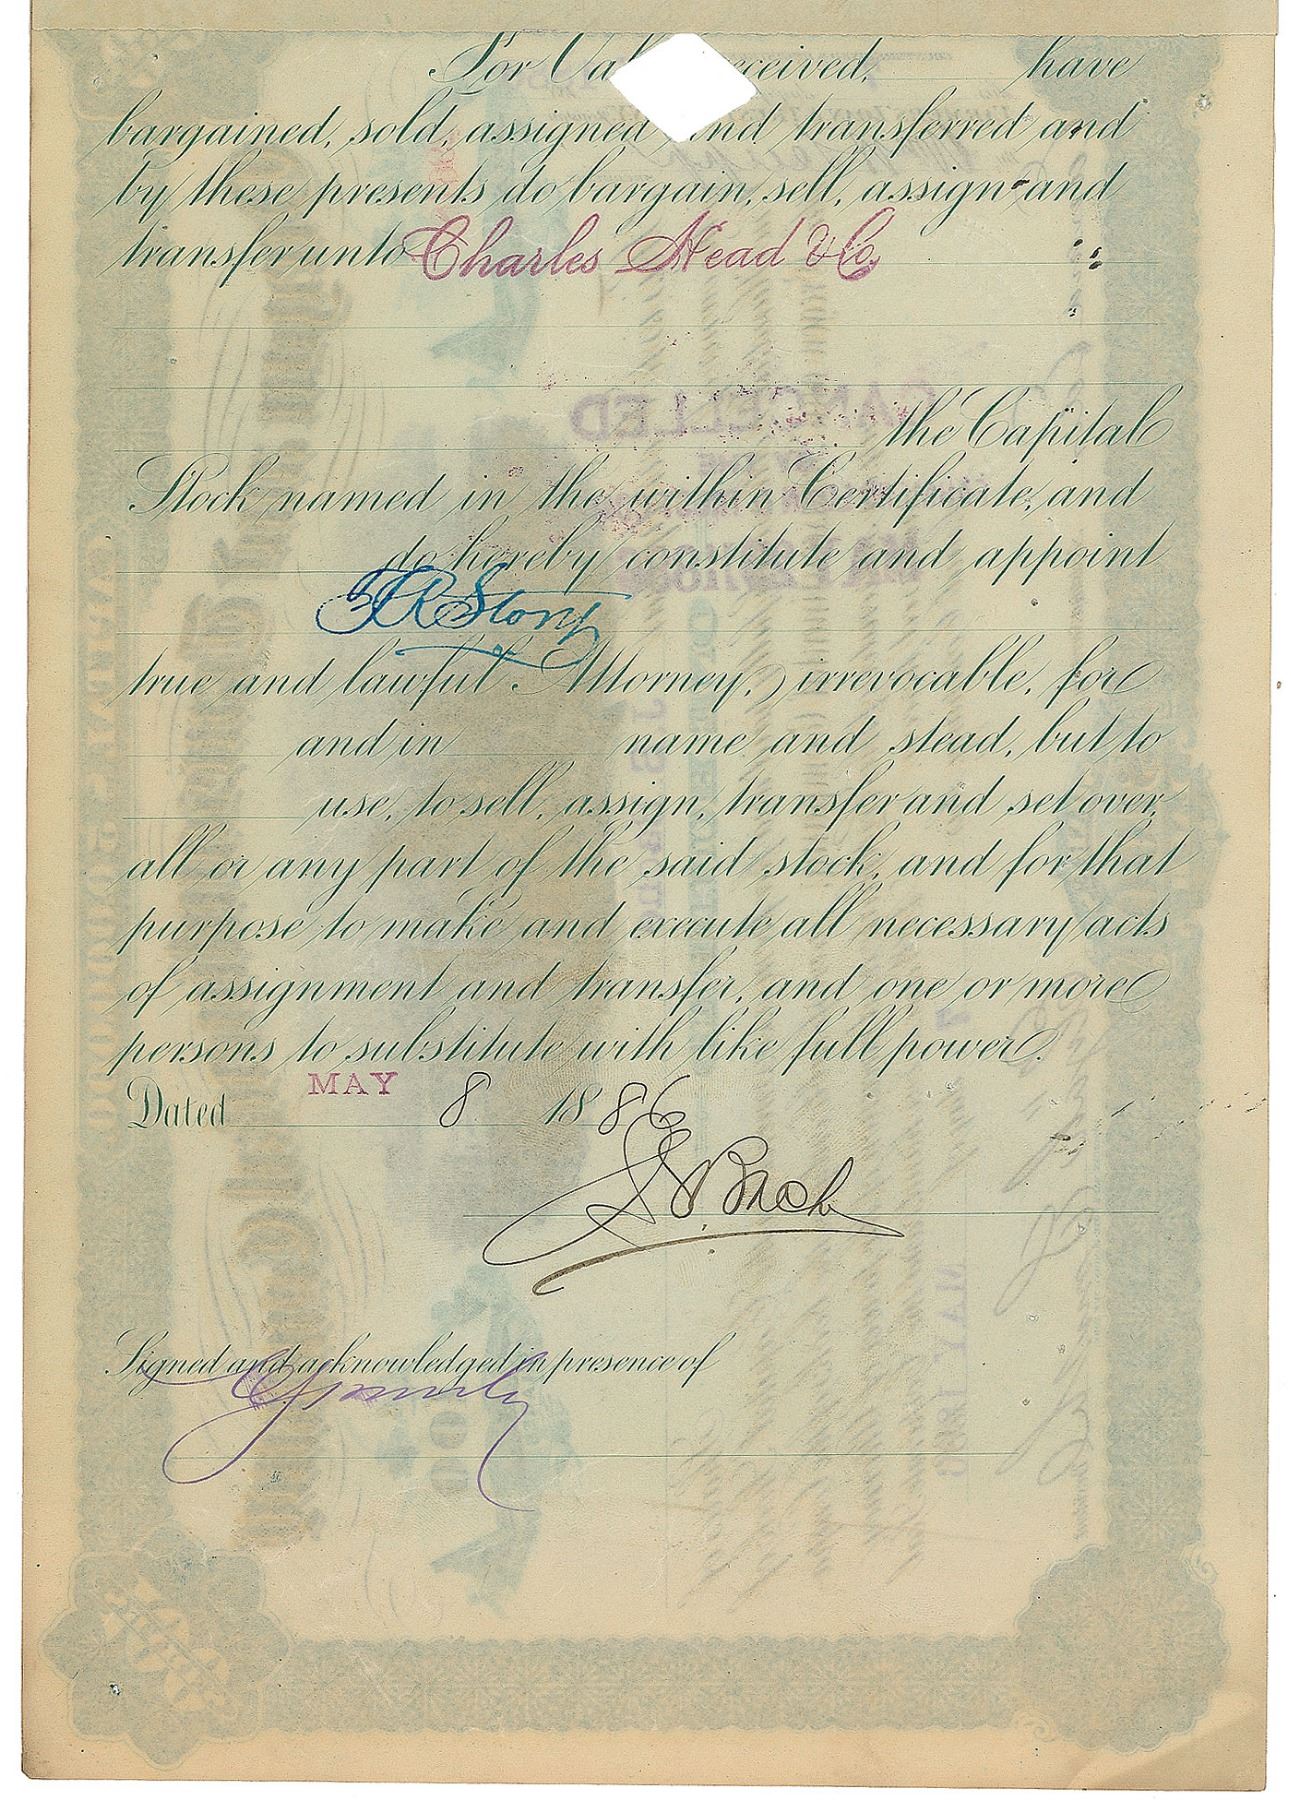 For Val eceived, have
bargained, sold, assigned and transferred and
by these presents do bargain, sell, assign and
transfer unto Charles Head & Co.
the Capital
Stock named in the within Certificate, and
do hereby constitute and appoint
true and lawful Attorney, irrevocable, for
and in name and stead, but to
use, to sell, assign, transfer and set over,
all or any part of the said stock, and for that
purpose to make and execute all necessary acts
of assignment and transfer, and one or more
persons to substitute with like full power.
Dated MAY 8 1886
Signed and acknowledged in presence of
CANCELLED